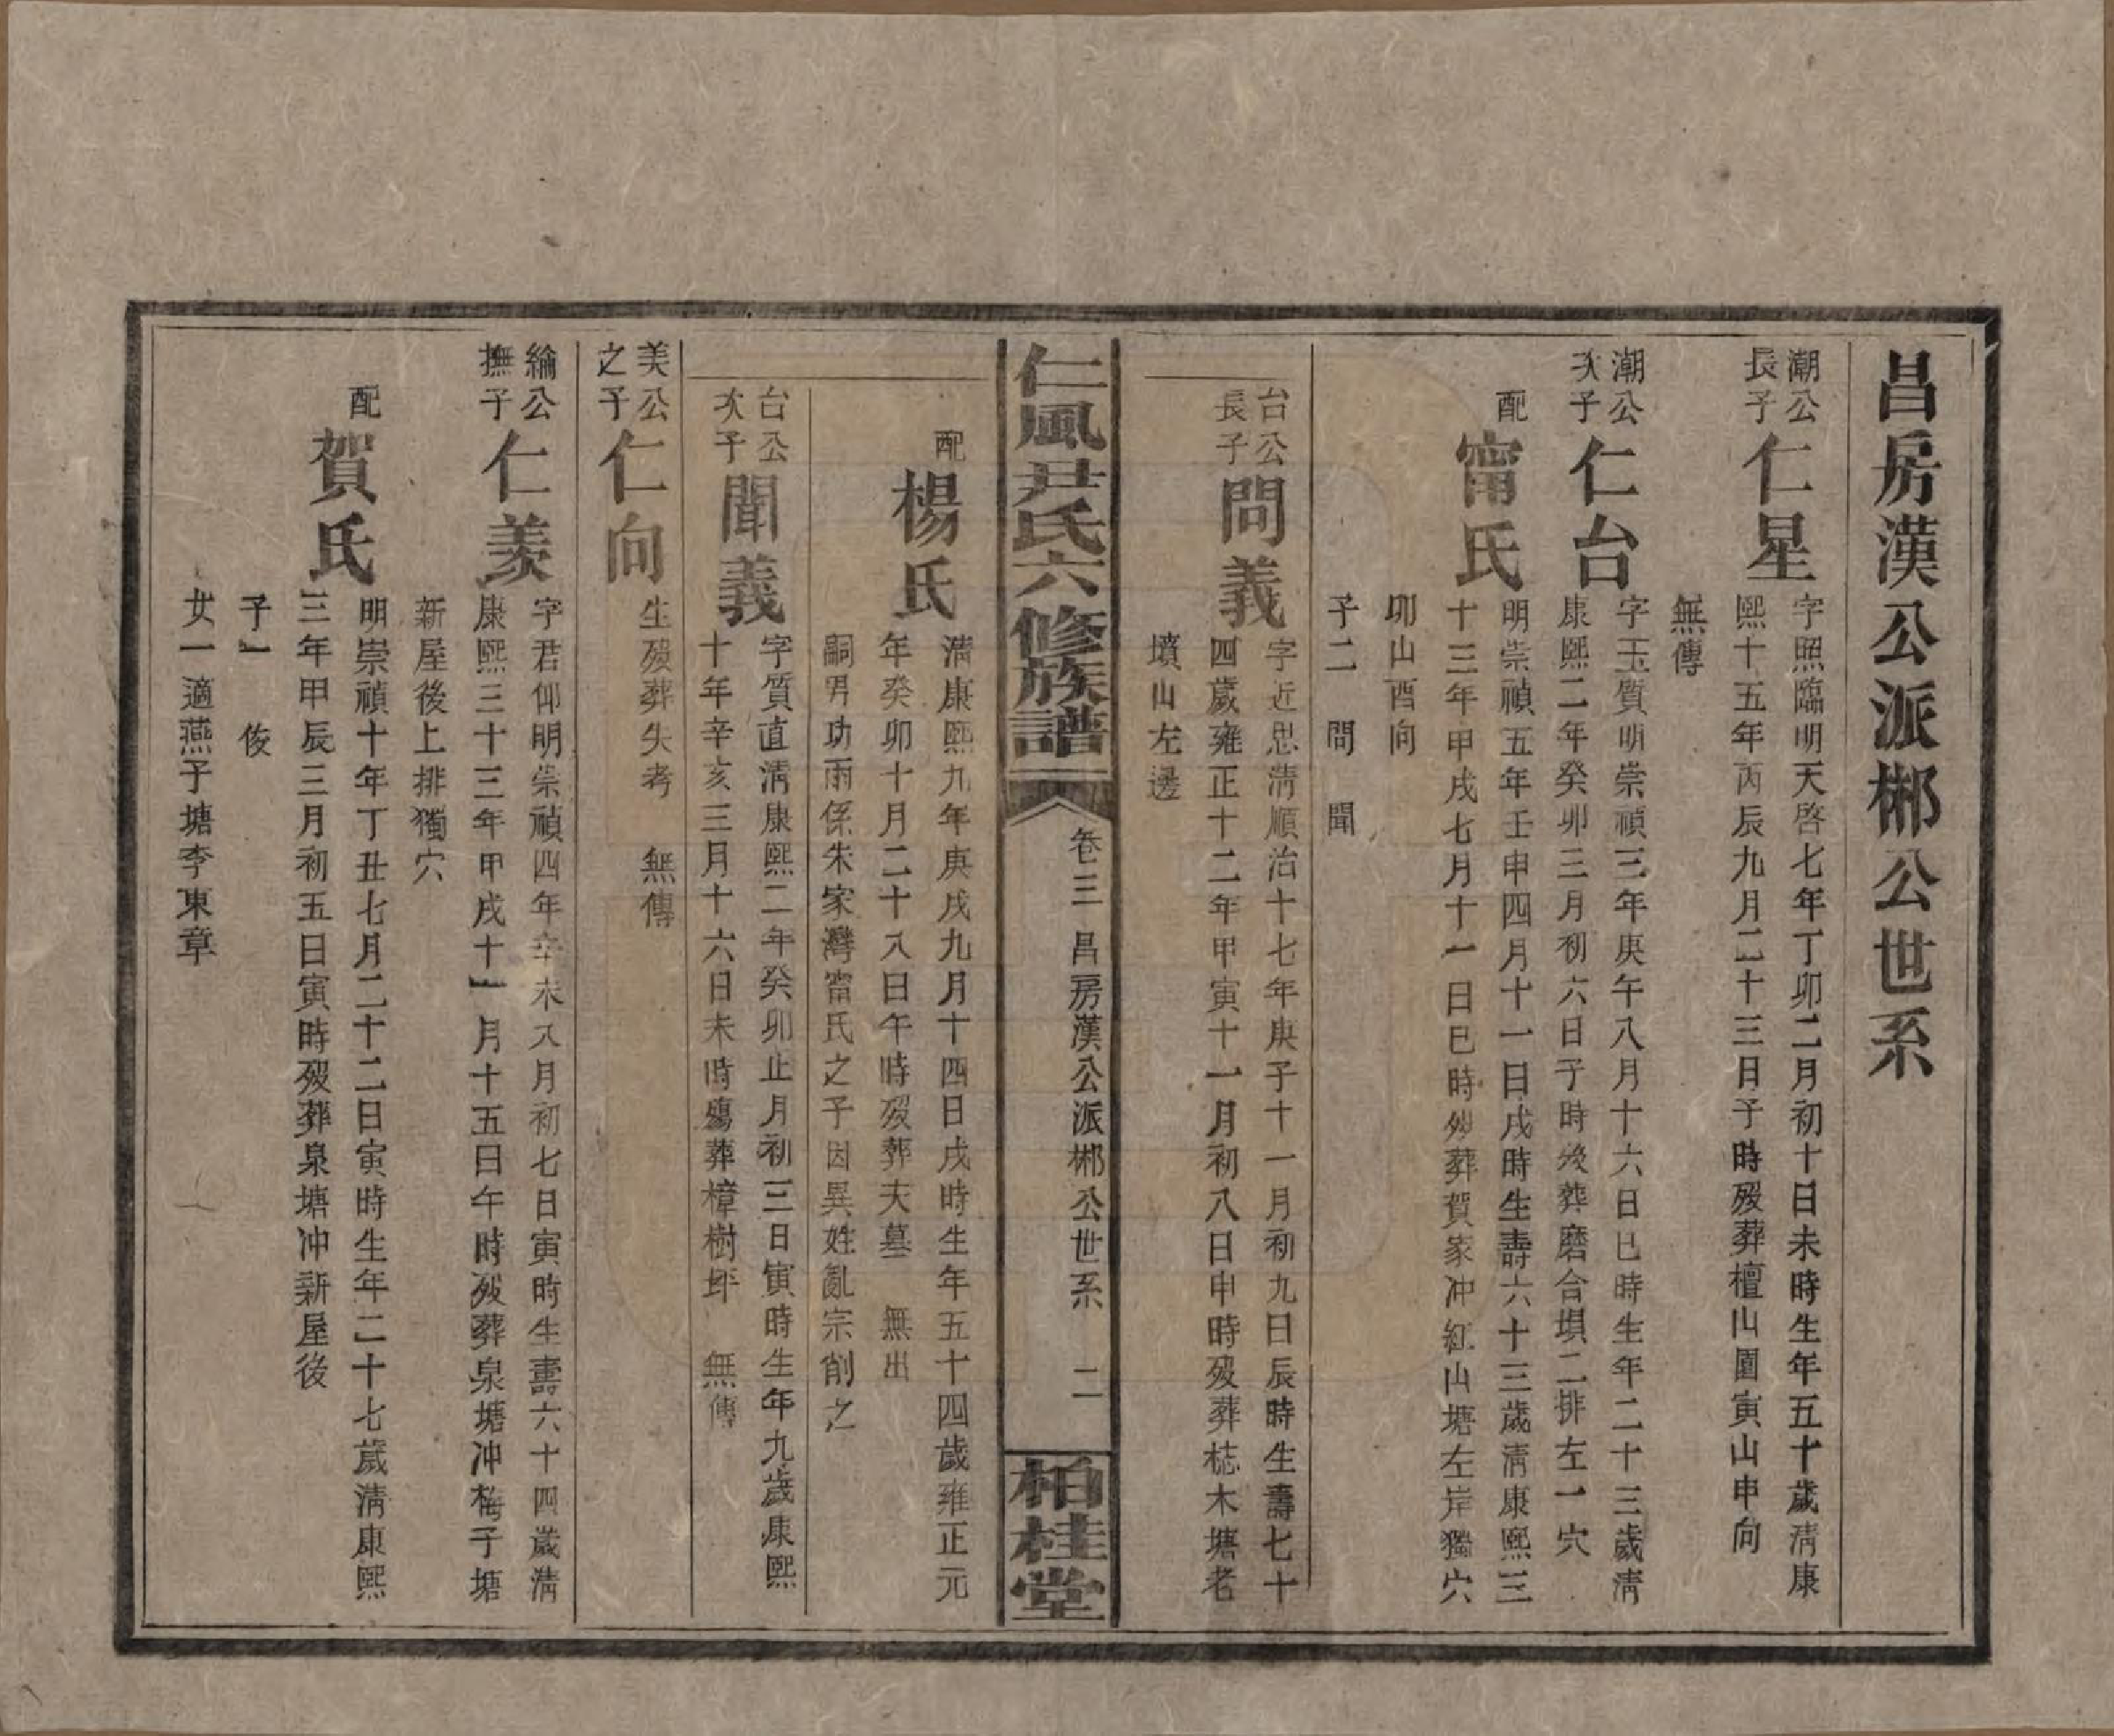 昌房漢公派郴公世系
潮公長子
仁星
字照臨明天啓七年丁卯二月初十日未時生年五十歲淸康
熙十五年丙辰九月二十三日子時歿葬檀山園寅山申向
無傳
潮公次子
仁台
字玉質明崇禎三年庚午八月十六日巳時生年二十三歲淸
康熙二年癸卯三月初六日子時歿葬磨合垻二排左一穴
配
甯氏
明崇禎五年壬申四月十一日戌時生壽六十三歲淸康熙三
十三年甲戌七月十一日巳時歿葬賀家冲紅山塘左岸獨穴
卯山酉向
子二 問 聞
台公長子
問義
字近思淸順治十七年庚子十一月初九日辰時生壽七十
四歲雍正十二年甲寅十一月初八日申時歿葬梽木塘老
墳山左邊
仁風尹氏六修族譜
卷三 昌房漢公派郴公世系 二
柏桂堂
配
楊氏
淸康熙九年庚戌九月十四日戌時生年五十四歲雍正元
年癸卯十月二十八日午時歿葬夫墓 無出
嗣男功雨係朱家灣甯氏之子因異姓亂宗削之
台公次子
聞義
字質直淸康熙二年癸卯正月初三日寅時生年九歲康熙
十年辛亥三月十六日未時殤葬樟樹坪 無傳
美公之子
仁向
生歿葬失考 無傳
綸公撫子
仁羨
字君仰明崇禎四年辛未八月初七日寅時生壽六十四歲淸
康熙三十三年甲戌十一月十五日午時歿葬泉塘冲梅子塘
新屋後上排獨穴
配
賀氏
明崇禎十年丁丑七月二十二日寅時生年二十七歲淸康熙
三年甲辰三月初五日寅時歿葬泉塘冲新屋後
子一 俊
女一適燕子塘李東章